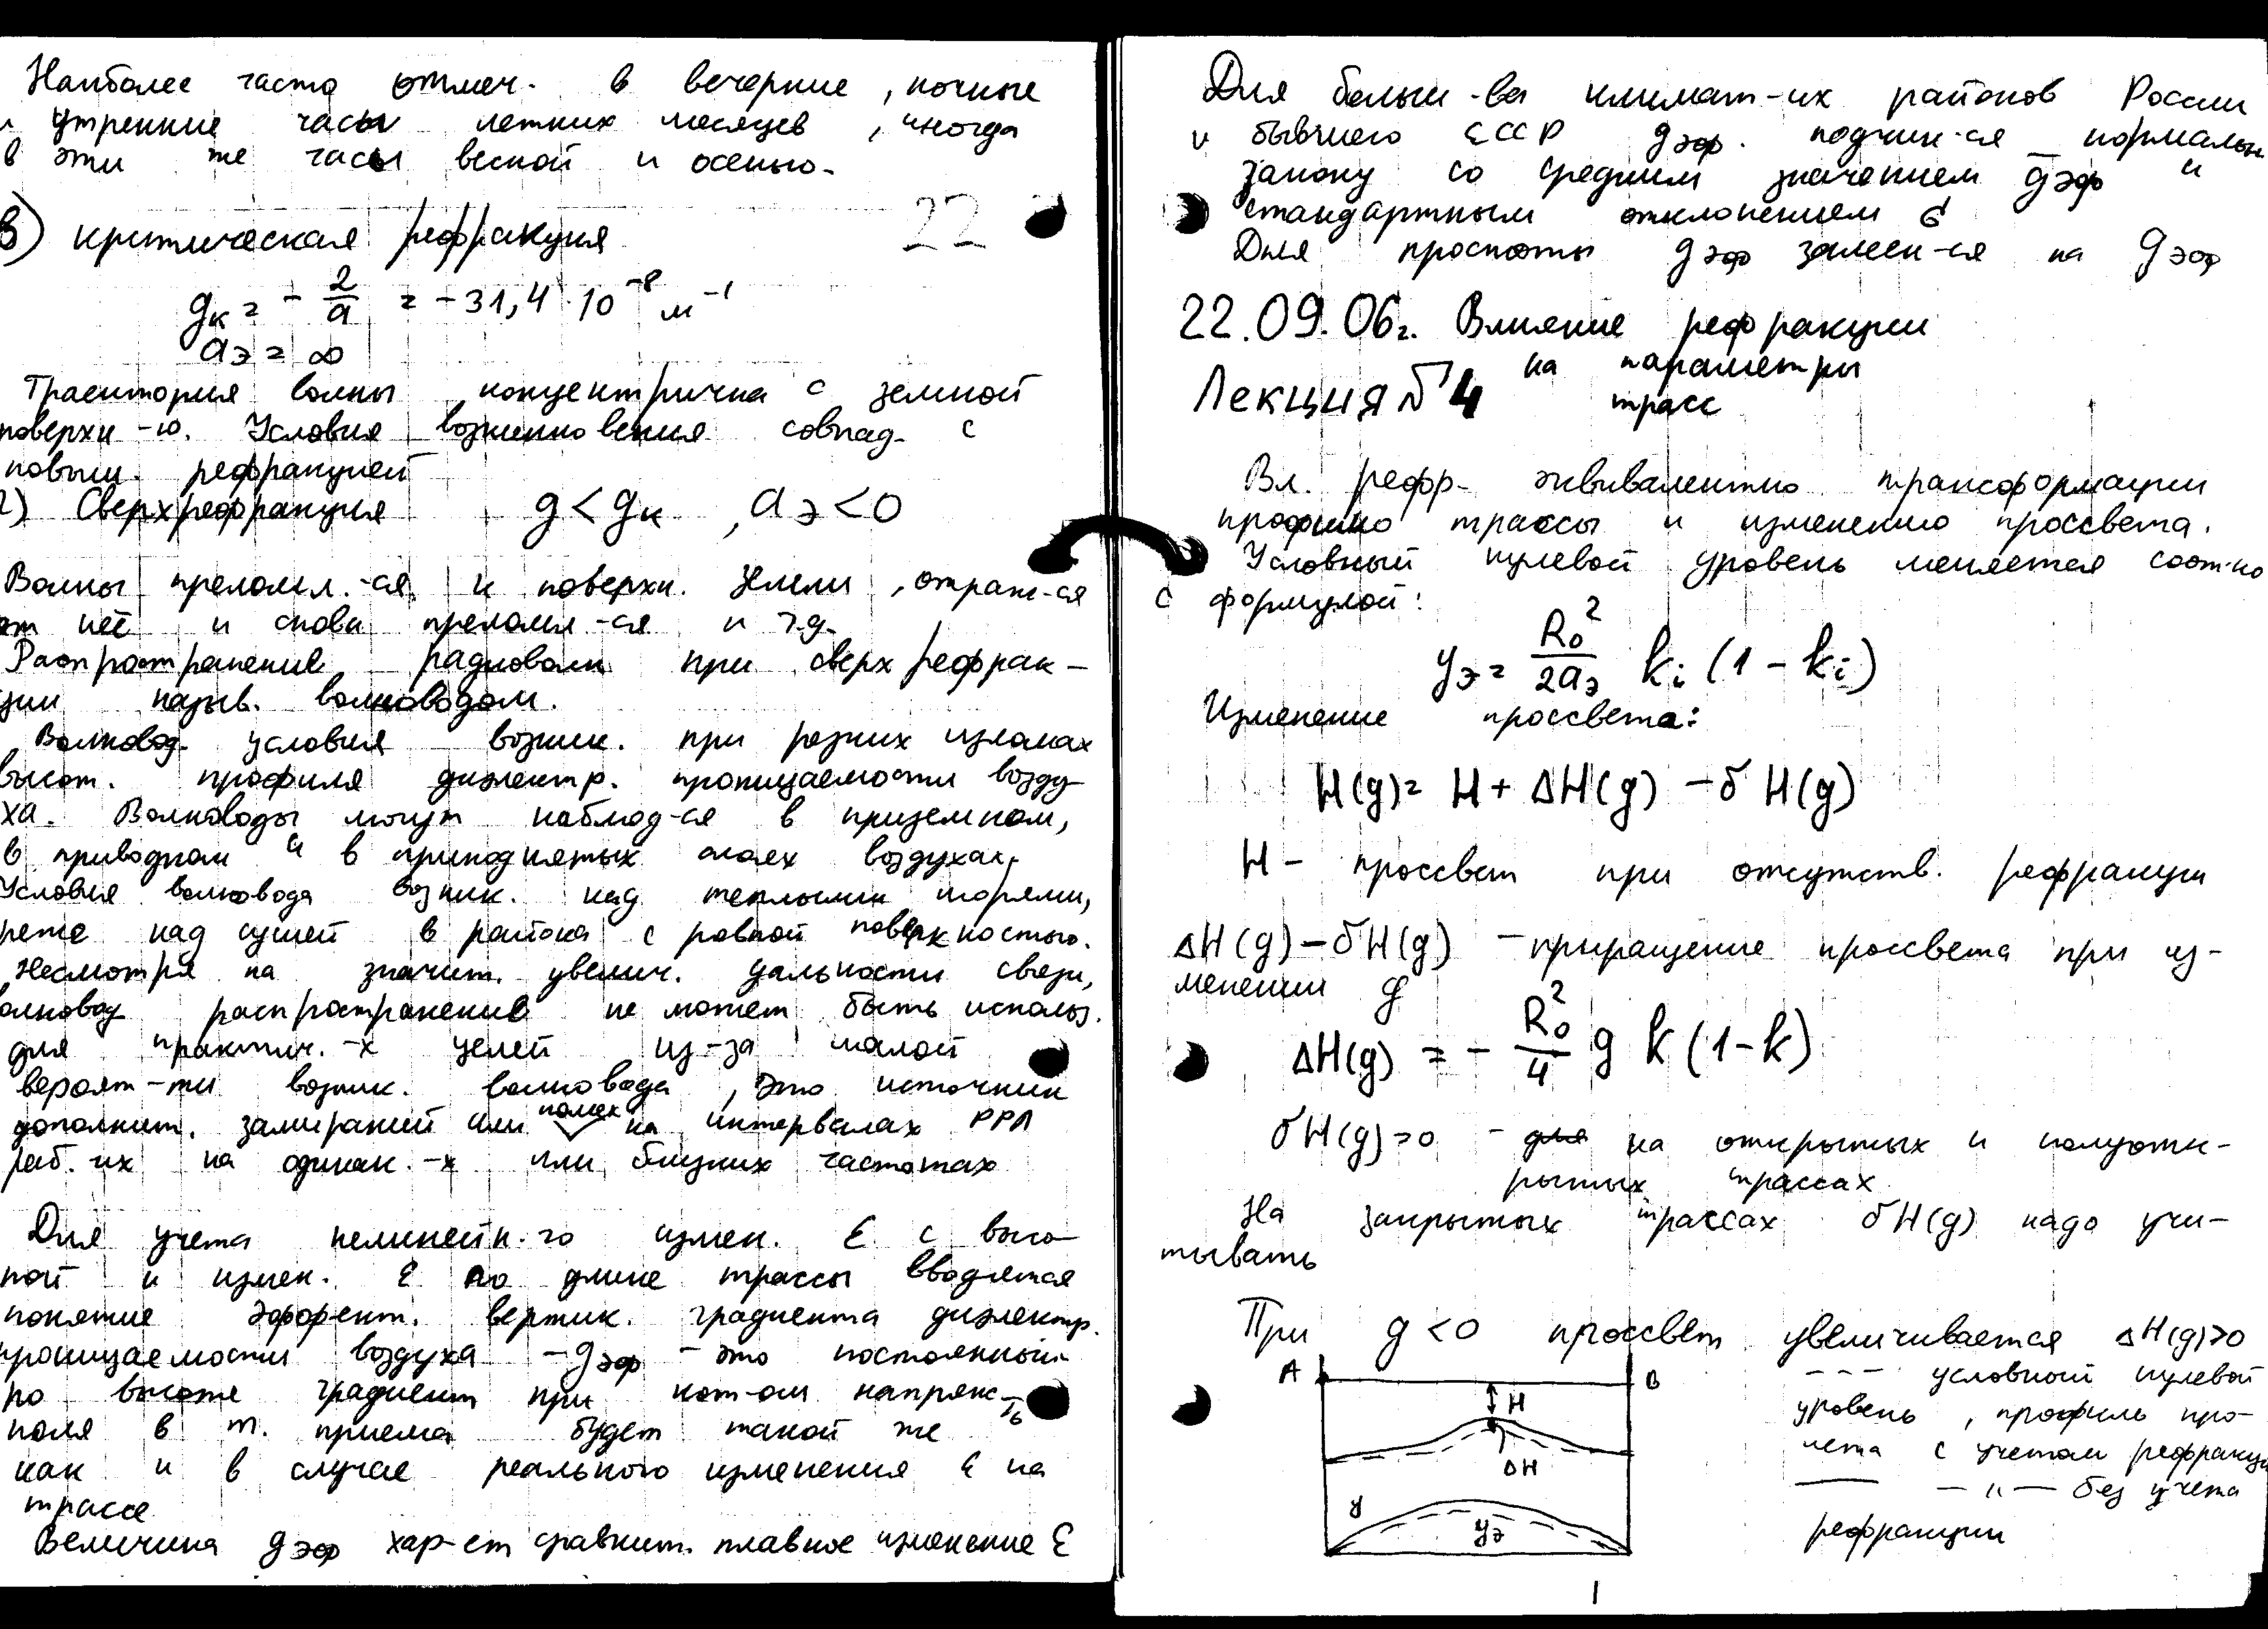 Наиболее часто отмеч. в вечерние, ночные
и утренние часы летних месяцев, иногда
в эти же часы весной и осенью.
22
в) критическая рефракция
gк = - 2/a = -31,4 · 10^-8 м^-1
aэ = ∞
Траектория волны концентрична с земной
поверхн-ю. Условия возникновения совпад. с
повыш. рефракцией
г) Сверхрефракция g < gк , aэ < 0
Волны преломл.-ся к поверхн. Земли, отраж-ся
от неё и снова преломл-ся и т.д.
Распространение радиоволн при сверхрефрак-
ции назыв. волноводом.
Волновод. условия возник. при резких изломах
высот. профиля диэлектр. проницаемости возду
ха. Волноводы могут наблюд-ся в приземном,
в приводном и в приподнятых слоях воздуха.
Условия волновода возник. над теплыми морями,
реже над сушей в района с ровной поверхностью.
Несмотря на значит. увелич. дальности связи,
волновод распространение не может быть использ.
для практич.-х целей из-за малой
вероят-ти возник. волновода, это источник
дополнит. замираний или помех на интервалах РРЛ
раб.-их на одинак.-х или близких частотах
Для учета нелинейн.го измен. ε с высо-
той и измен. ε по длине трассы вводятся
понятие эффект. вертик. градиента диэлектр.
проницаемости воздуха - gэф - это постоянный
по высоте градиент при кот-ом напряж-ть
поля в т. приема будет такой же
как и в случае реального изменения ε на
трассе
Величина gэф хар-ет сравнит. плавное изменение ε
Для больш-ва климат-их районов России
и бывшего СССР gэф. подчин-ся нормальн
закону со средним значением g̅эф и
стандартным отклонением σ
Для простоты g̅эф замен-ся на gэф
22.09.06г. Влияние рефракции
на параметры
Лекция №4 трасс
Вл. рефр- эквивалентно трансформации
профилю трассы и изменению просвета.
Условный нулевой уровень меняется соот-но
с формулой:
yэ = R₀²/2aэ kᵢ (1 - kᵢ)
Изменение просвета:
H(g) = H + ΔH(g) - δH(g)
H - просвет при отсутств. рефракции
ΔH(g) - δH(g) - приращение просвета при из-
менении g
ΔH(g) = - R₀²/4 g k (1-k)
δH(g)=0 - для на открытых и полуотк-
рытых трассах
На закрытых трассах δH(g) надо учи-
тывать
При g < 0 просвет увеличивается ΔH(g)>0
A B
H
ΔH
y
yэ
--- условный нулевой
уровень, профиль про-
лета с учетом рефракци
—— — " — без учета
рефракции